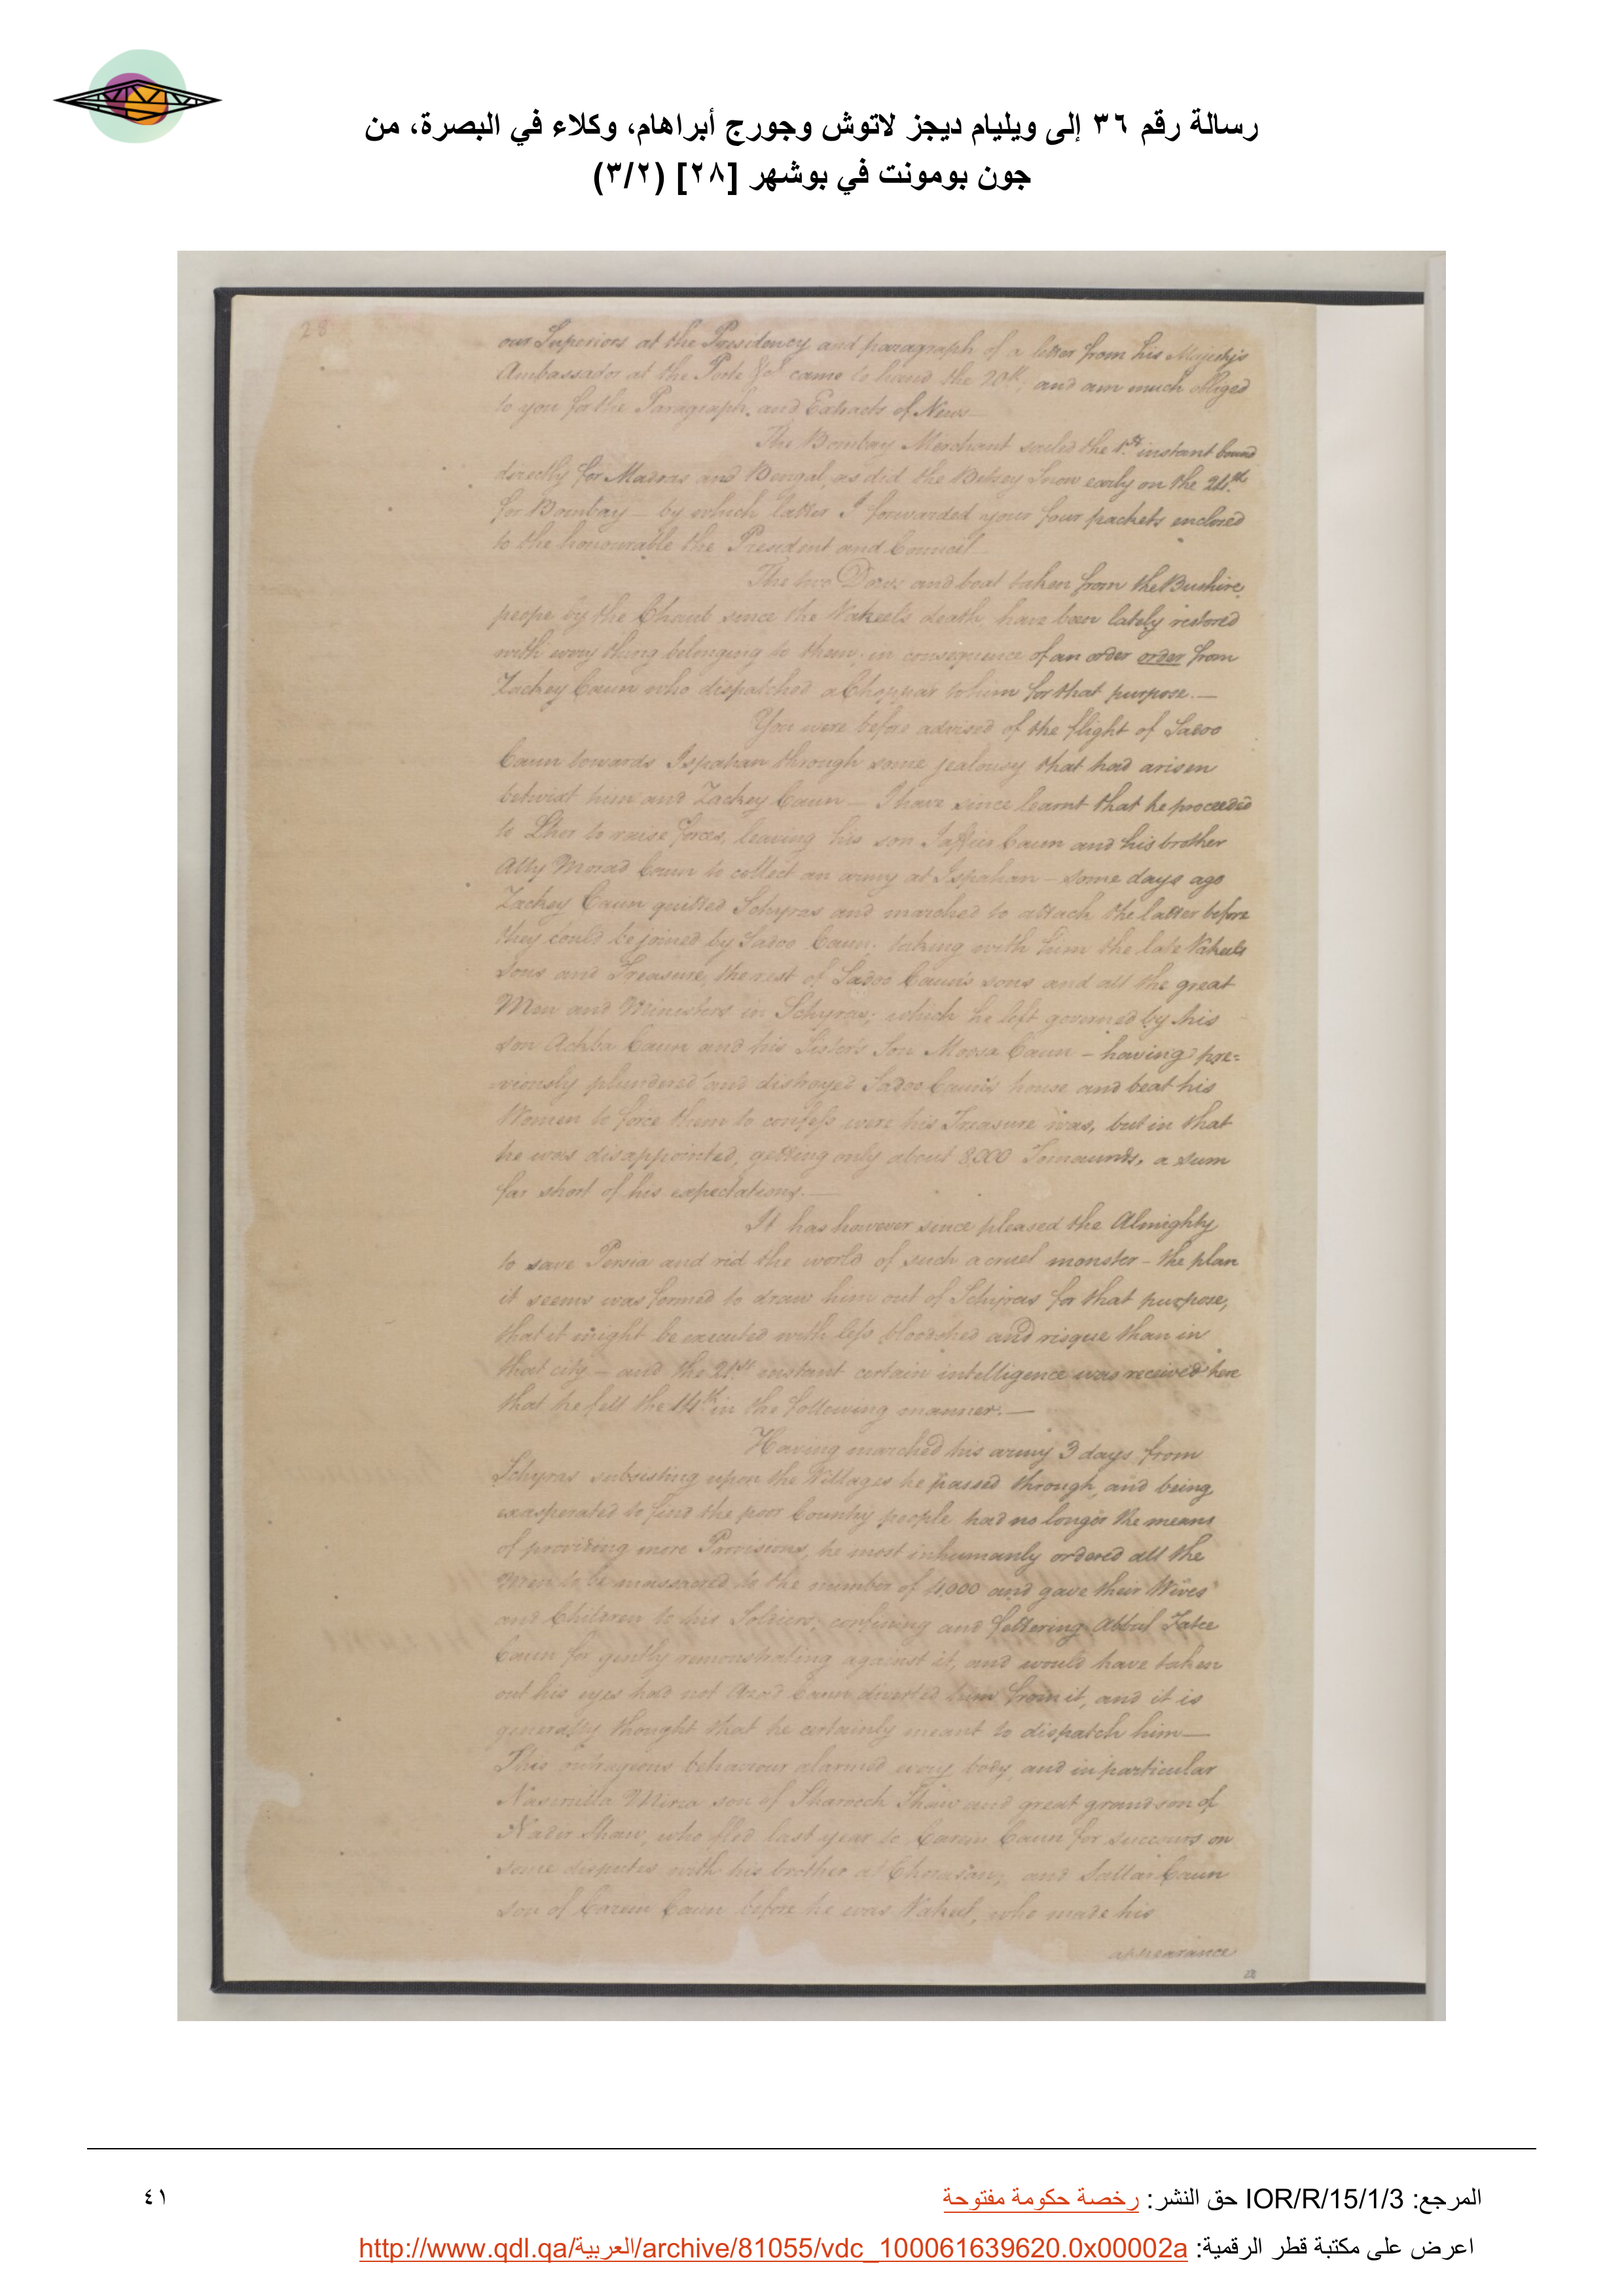 رسالة رقم ٣٦ إلى ويليام ديجز لاتوش وجورج أبراهام، وكلاء في البصرة، من
جون بومونت في بوشهر [٢٨] (٣/٢)
28
our Superiors at the Presidency and paragraph of a letter from his Majestys
Ambassador at the Porte &ca came to hand the 20th, and am much obliged
to you for the Paragraph, and Extracts of News—
The Bombay Merchant sailed the 1st instant bound
directly for Madras and Bengal, as did the Betsey Snow early on the 24th
for Bombay — by which latter I forwarded your four packets enclosed
to the honourable the President and Council—
The two Dows and boat taken from the Bushire
peope by the Chaub since the Vakeel's death, have been lately restored
with every thing belonging to them, in consequence of an order order from
Zackey Caun who dispatched a Choppar to him for that purpose.—
You were before advised of the flight of Sadoo
Caun towards Ispahan through some jealousy that had arisen
betwixt him and Zackey Caun — I have since learnt that he proceeded
to Lher to raise forces, leaving his son Jaffier Caun and his brother
Ally Morad Caun to collect an army at Ispahan — some days ago
Zackey Caun quitted Schyras and marched to attack the latter before
they could be joined by Sadoo Caun; taking with him the late Vakeels
Sons and Treasure, the rest of Sadoo Caun's sons and all the great
Men and Ministers in Schyras; which he left governed by his
son Achba Caun and his Sister's Son Moosa Caun — having pre=
=viously plundered and distroyed Sadoo Caun's house and beat his
Women to force them to confess were his Treasure was, but in that
he was disappointed, getting only about 8,000 Tomaunds, a sum
far short of his expectations.—
It has however since pleased the Almighty
to save Persia and rid the world of such a cruel monster — the plan
it seems was formed to draw him out of Schyras for that purpose,
that it might be executed with less bloodshed and risque than in
that city — and the 21st instant certain intelligence was received here
that he fell the 14th in the following manner.—
Having marched his army 3 days from
Schyras subsisting upon the Villages he passed through, and being
exasperated to find the poor Country people had no longer the means
of providing more Provisions, he most inhumanly ordered all the
Men to be massacred to the number of 4,000 and gave their Wives
and Children to his Soldiers; confining and fettering Abbul Fatee
Caun for gently remonstrating against it, and would have taken
out his eyes had not Azad Caun diverted him from it, and it is
generally thought that he certainly meant to dispatch him—
This outragious behaviour alarmed every body, and in particular
Nasirulla Mirza son of Sharoch Shaw and great grandson of
Nadir Shaw, who fled last year to Carim Caun for succours on
some disputes with his brother at Chorasan; and Sallar Caun
son of Carim Caun before he was Vakeel, who made his
appearance
المرجع: IOR/R/15/1/3 حق النشر: رخصة حكومة مفتوحة
٤١
اعرض على مكتبة قطر الرقمية: http://www.qdl.qa/العربية/archive/81055/vdc_100061639620.0x00002a